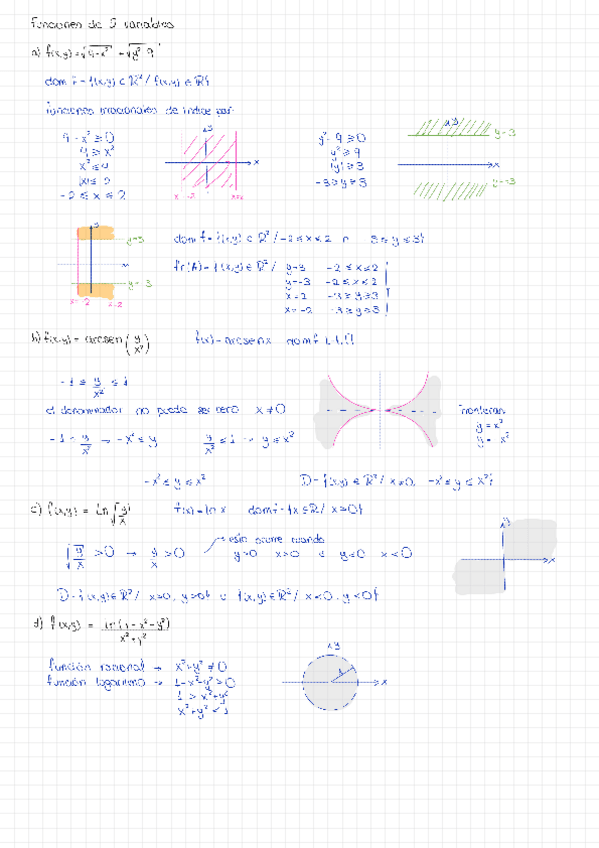 Funciones de 2 variables
a) f(x,y) = √4-x² + √y²-9
dom f = {(x,y) ⊂ ℝ² / f(x,y) ∈ ℝ}
funciones irracionales de índice par
4 - x² ≥ 0
4 ≥ x²
x² ≤ 4
|x| ≤ 2
-2 ≤ x ≤ 2
y
x
x=-2
x=2
y² - 9 ≥ 0
y² ≥ 9
|y| ≥ 3
-3 ≥ y ≥ 3
y
y=3
x
y=-3
y=3
y=-3
x=-2
x=2
dom f = {(x,y) ⊂ ℝ² / -2 ≤ x ≤ 2 ∩ 3 ≤ y ≤ 3}
fr(A) = {(x,y) ∈ ℝ² /
y=3 -2 ≤ x ≤ 2
y=-3 -2 ≤ x ≤ 2
x=2 -3 ≥ y ≥ 3
x=-2 -3 ≥ y ≥ 3
b) f(x,y) = arcsen(y/x²) f(x) = arcsen x dom f
-1 ≤ y/x² ≤ 1
el denominador no puede ser cero x ≠ 0
-1 ≤ y/x² → -x² ≤ y y/x² ≤ 1 → y ≤ x²
frontera:
y = x²
y = x²
-x² ≤ y ≤ x² D = {(x,y) ∈ ℝ² / x ≠ 0, -x² ≤ y ≤ x²}
c) f(x,y) = ln√y/x f(x) = ln x dom f = {x ∈ ℝ / x > 0}
√y/x > 0 → y/x > 0
esto ocurre cuando
y>0 x>0 y<0 x<0
y
x
D = {(x,y) ∈ ℝ² / x>0, y>0} ∪ {(x,y) ∈ ℝ² / x<0, y<0}
d) f(x,y) = ln(1-x²-y²)/x²+y²
función racional → x²+y² ≠ 0
función logaritmo → 1-x²-y² > 0
1 > x²+y²
x²+y² < 1
y
1
x